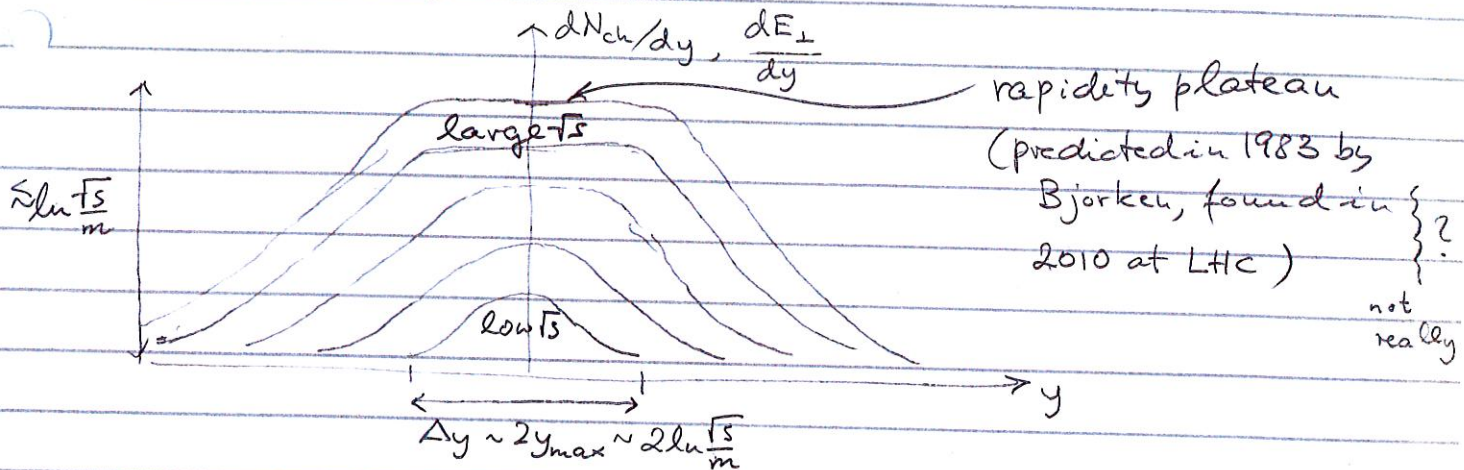 dN_ch/dy, dE_⊥/dy
rapidity plateau
(predicted in 1983 by
Bjorken, found in
2010 at LHC) } ?
not
really
large √s
~ln √s/m
low √s
y
Δy ~ 2y_max ~ 2ln √s/m